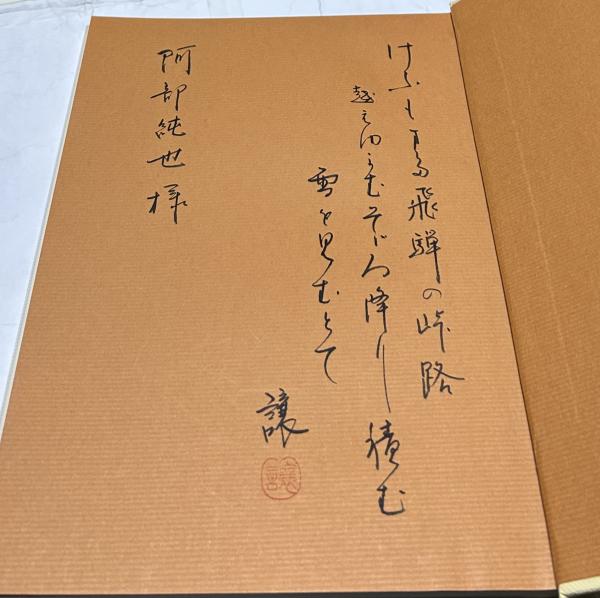 けふもまた飛騨の峠路
越えゆかむ降り積む
雪を見むとて
譲
阿部純也様